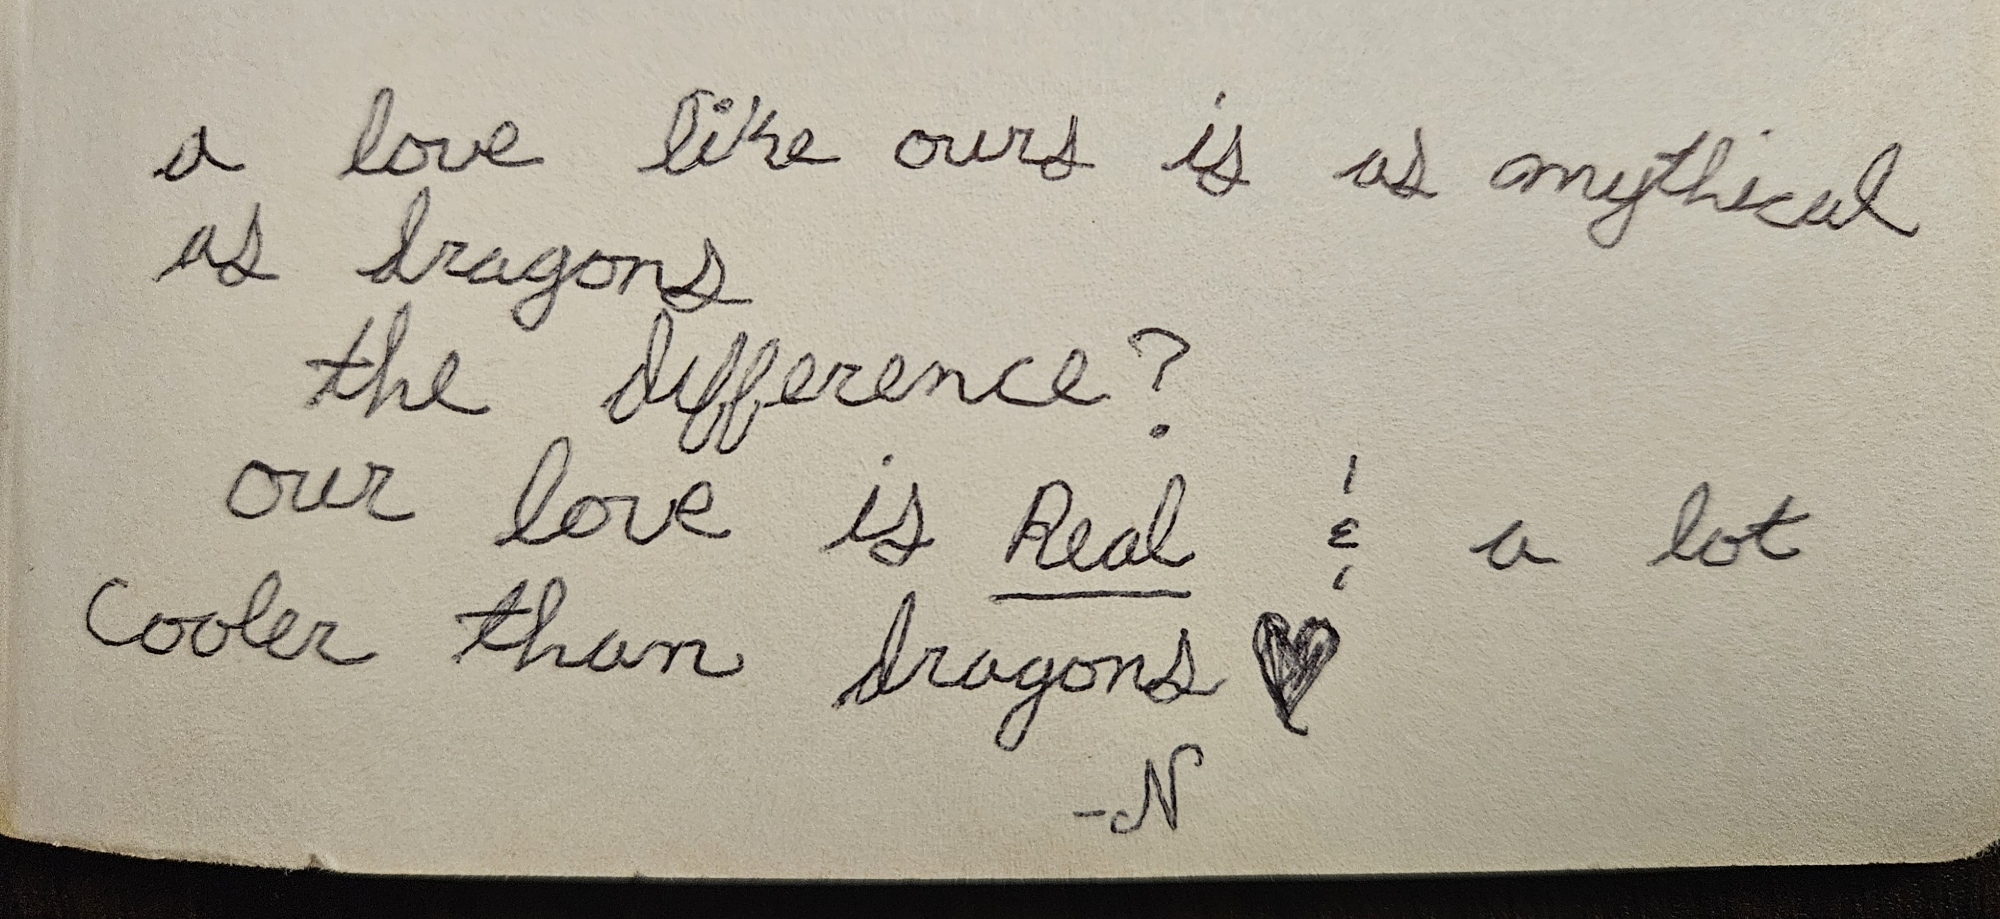 a love like ours is as mythical
as dragons
the difference?
our love is Real & a lot
cooler than dragons ♥
-N